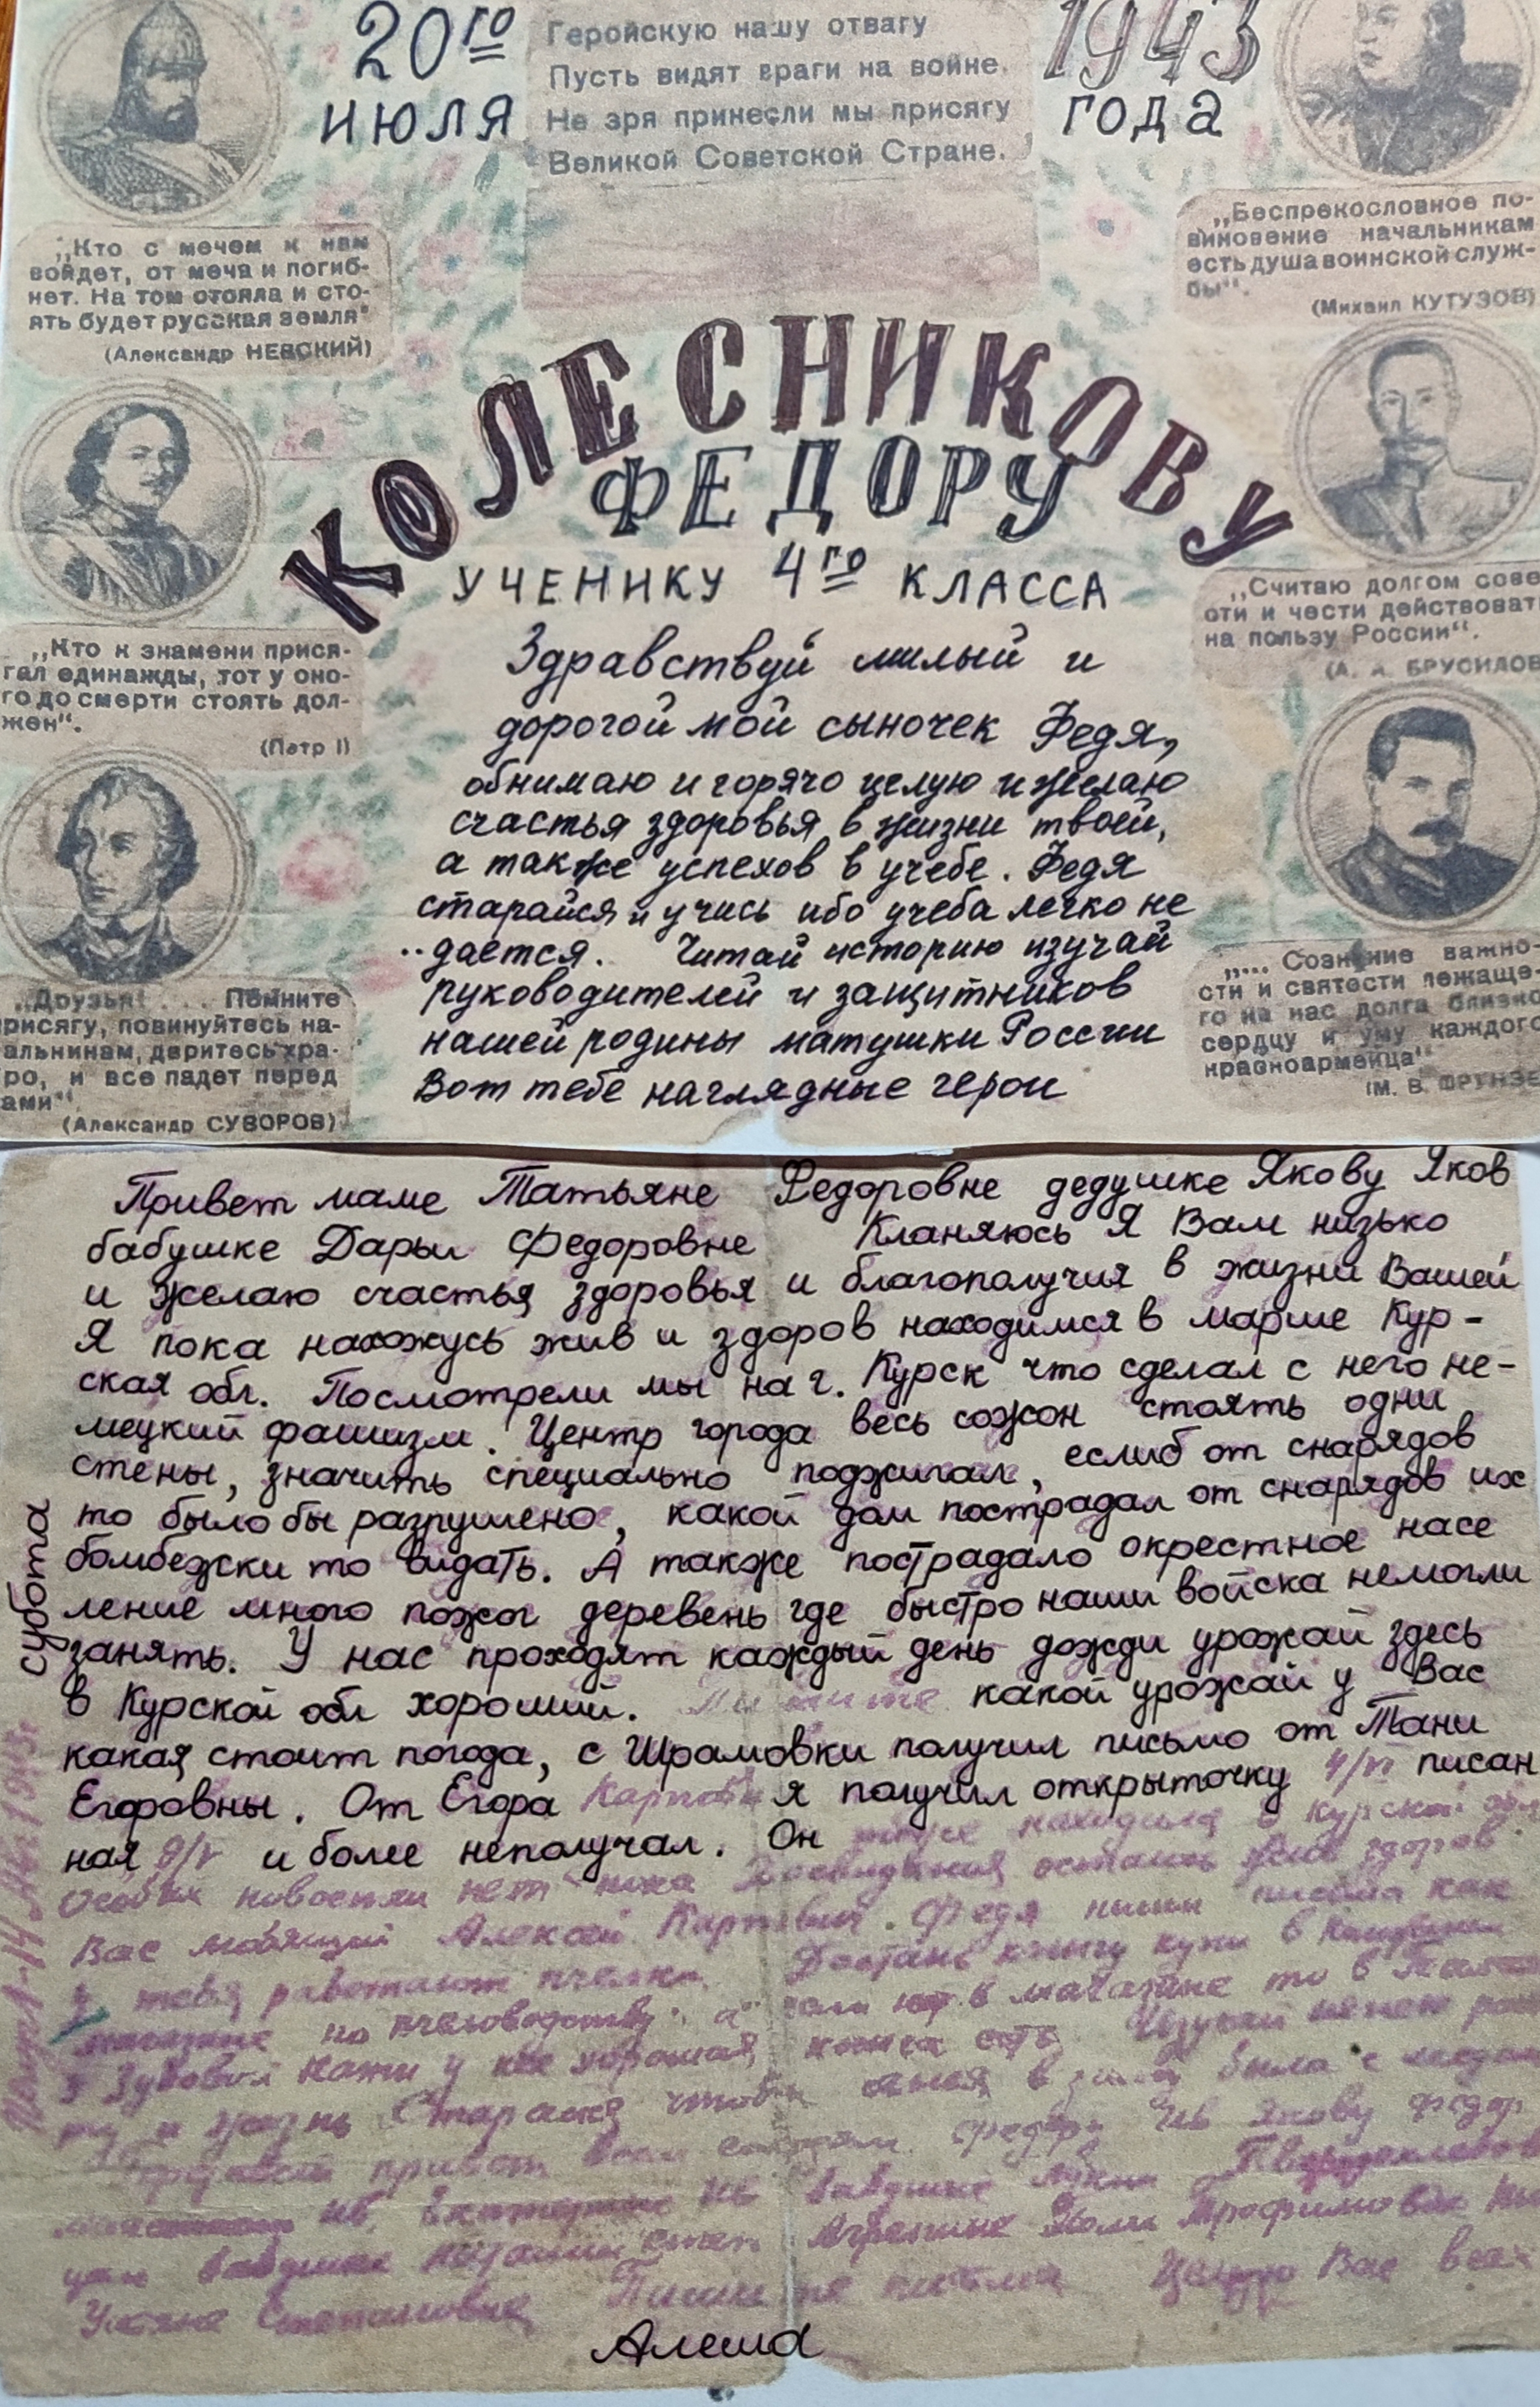 20го
июля
Геройскую нашу отвагу
Пусть видят враги на войне.
Не зря принесли мы присягу
Великой Советской Стране.
1943
года
„Кто с мечем к нам
войдет, от меча и погиб-
нет. На том стояла и сто-
ять будет русская земля"
(Александр НЕВСКИЙ)
„Беспрекословное по-
виновение начальникам
есть душа воинской служ-
бы".
(Михаил КУТУЗОВ)
КОЛЕСНИКОВУ
ФЕДОРУ
УЧЕНИКУ 4го КЛАССА
„Кто к знамени прися-
гал единажды, тот у оно-
го до смерти стоять дол-
жен".
(Петр I)
„Считаю долгом сове
сти и чести действоват
на пользу России".
(А. А. БРУСИЛОВ
„Друзья! . . . Помните
рисягу, повинуйтесь на-
альникам, деритесь хра-
ро, и все падет перед
ами"
(Александр СУВОРОВ)
„... Сознание важно-
сти и святости лежаще-
го на нас долга близко
сердцу и уму каждого
красноармейца"
(М. В. ФРУНЗЕ
Здравствуй милый и
дорогой мой сыночек Федя,
обнимаю и горячо целую и желаю
счастья здоровья в жизни твоей,
а также успехов в учебе. Федя
старайся и учись ибо учеба легко не
дается. Читай историю изучай
руководителей и защитников
нашей родины матушки России
Вот тебе наглядные герои
Привет маме Татьяне Федоровне дедушке Якову Яков
бабушке Дарьи Федоровне Кланяюсь Я Вам низько
и желаю счастья здоровья и благополучия в жизни Вашей
Я пока нахожусь жив и здоров находимся в марше Кур-
ская обл. Посмотрели мы на г. Курск что сделал с него не-
мецкий фашизм. Центр города весь сожон стоять одни
стены, значить специально поджигал, еслиб от снарядов
то было бы разрушено, какой дом пострадал от снарядов их
бомбежки то видать. А также пострадало окрестное насе
ление много пожог деревень где быстро наши войска немогли
занять. У нас проходят каждый день дожди урожай здесь
в Курской обл хороший. Пишите какой урожай у Вас
какая стоит погода, с Шрамовки получил письмо от Тани
Егоровны. От Егора Карповича я получил открыточку 4/VI писан
ная и более неполучал. Он находился в Курской обл
Особых новостей нет пока Досвидания остаюсь жив здоров
Вас любящий Алексей Карпович. Федя пиши письма как
у тебя работают пчелки. Достань книгу купи в
магазине по пчеловодству, а если нет в магазине то в
у книга есть. Изучай
и жизнь Старайся чтобы в была с медом
привет всем Якову Федор
бабушке
бабушке
Степановне Пишите письма Целую Вас всех
Алеша
субота
1943г